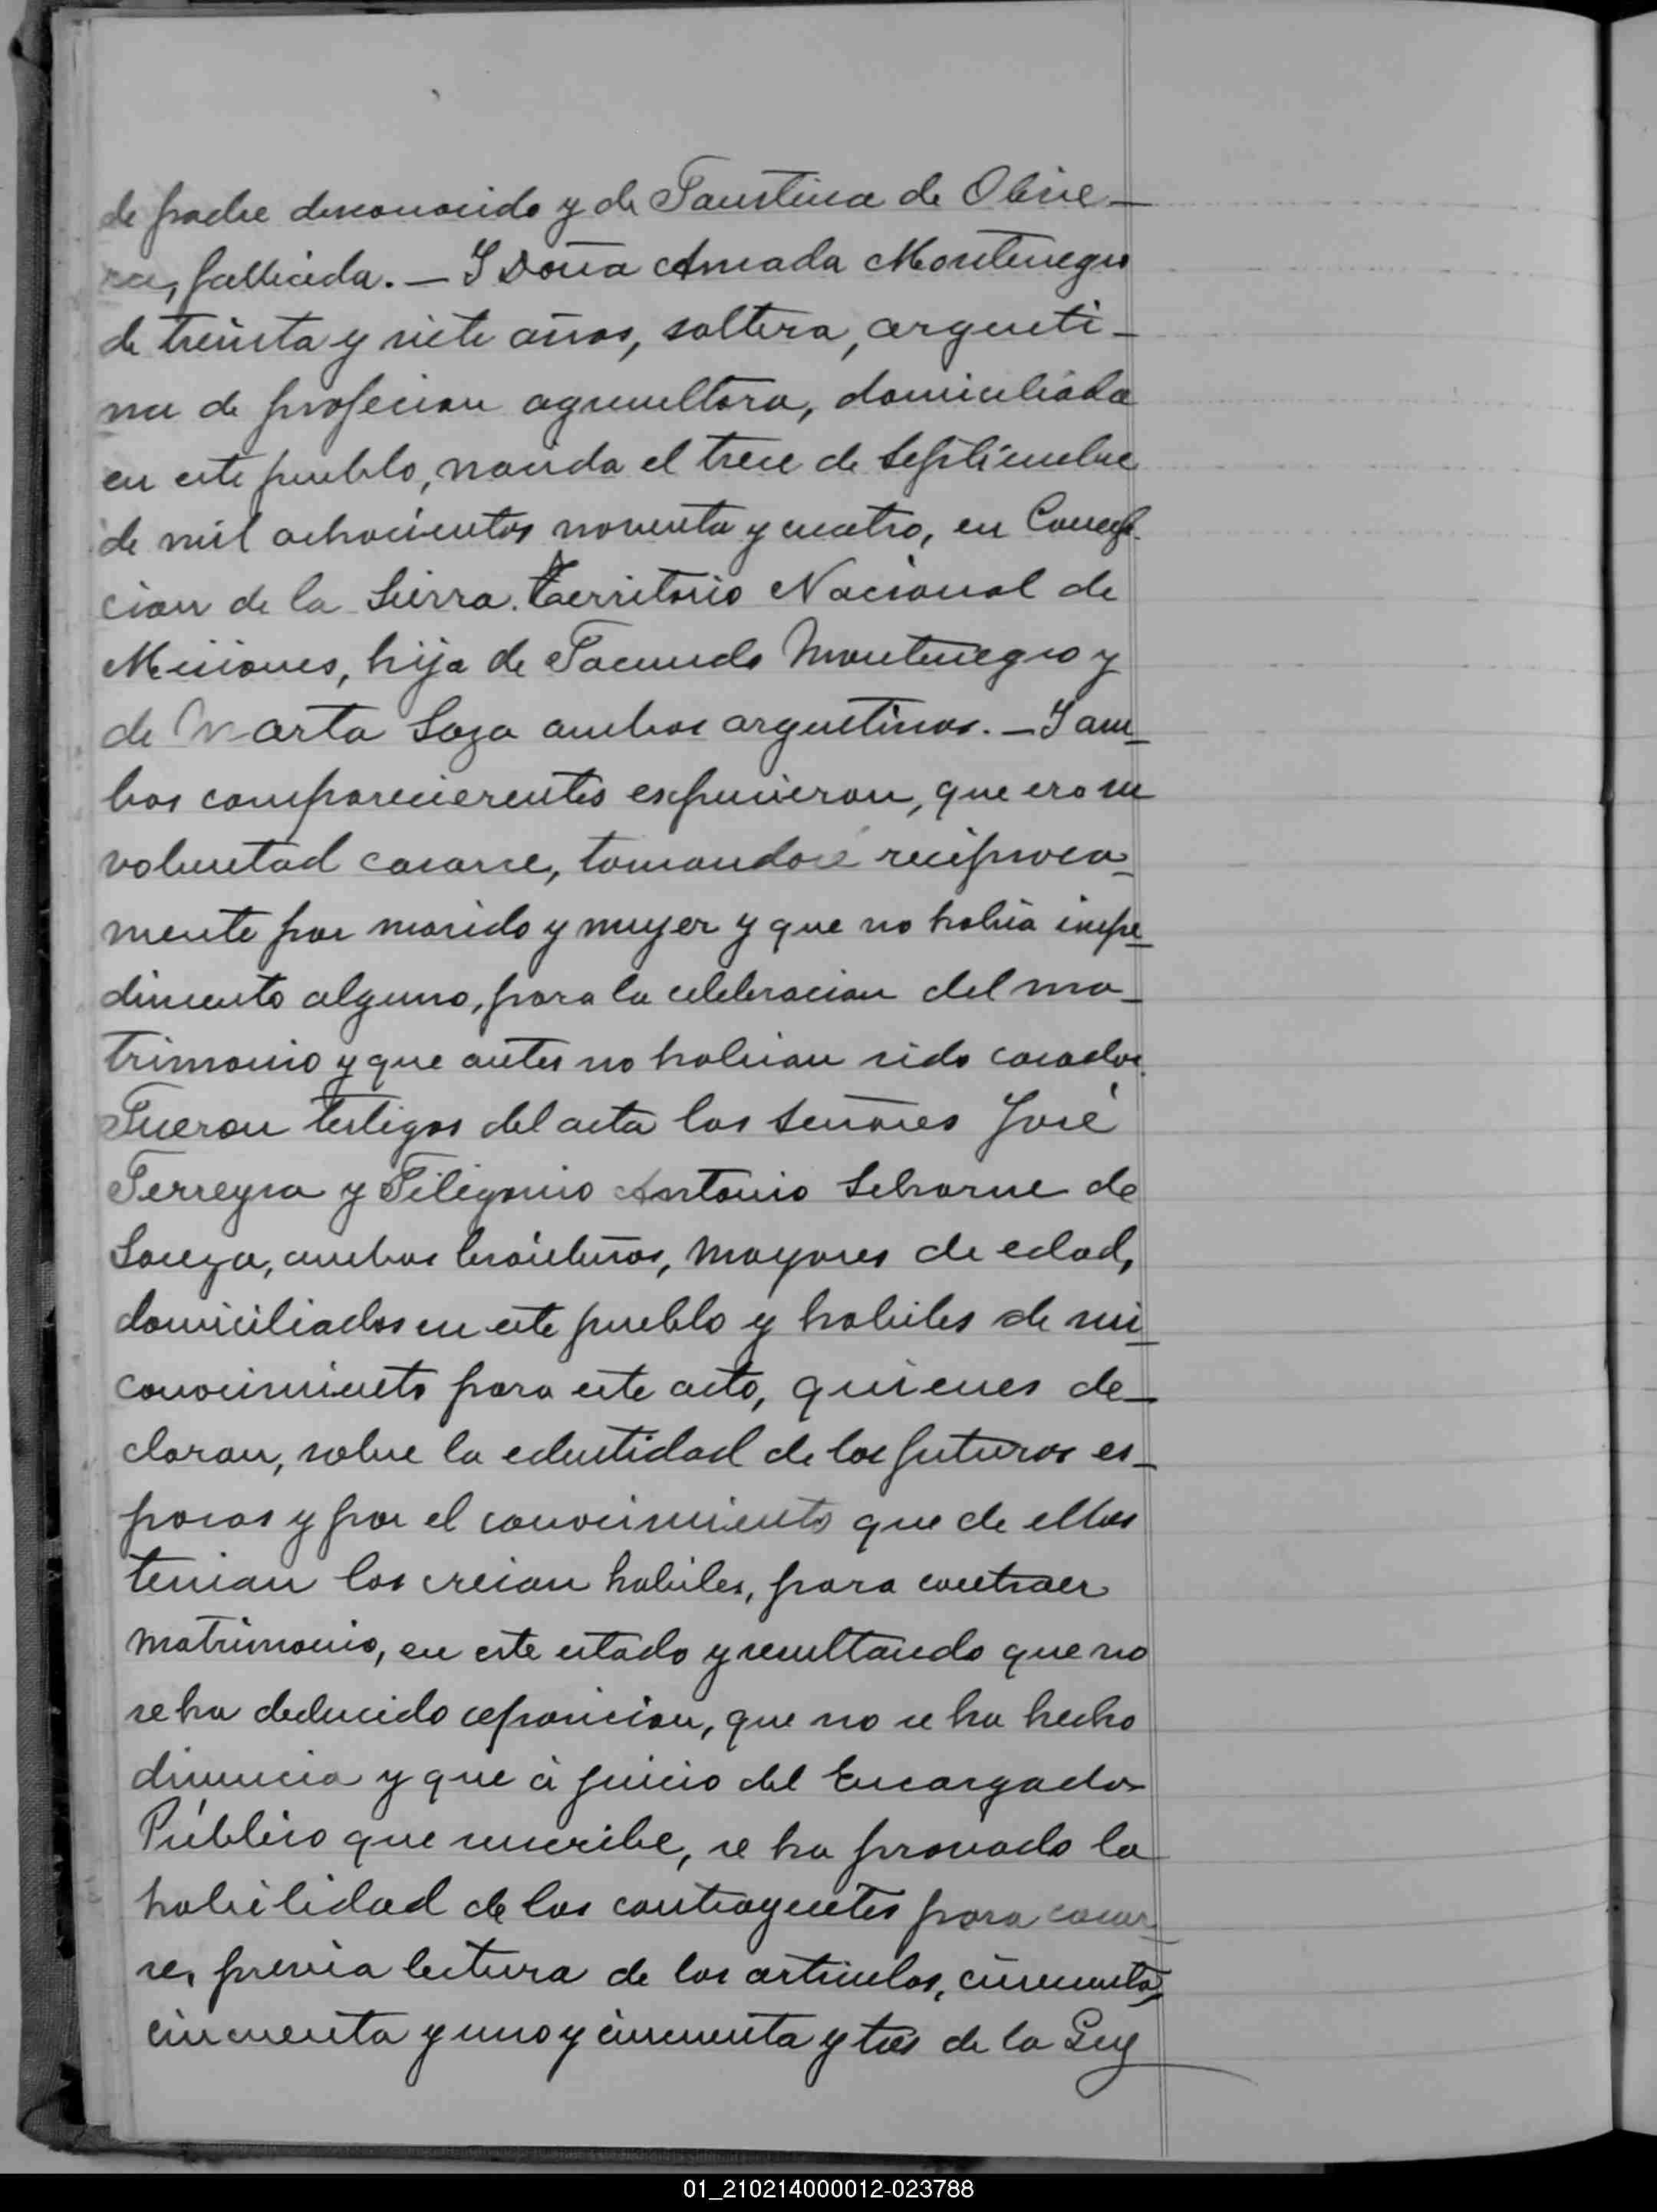 de padre desconocido y de Faustina de Olivie—
ra, fallecida. — Y Doña Amada Montenegro
de treinta y siete años, soltera, argenti—
na de profecion agricultora, domiciliada
en este pueblo, nacida el trece de Septiembre
de mil achocientos noventa y cuatro, en Concep-
cion de la Sierra. Territorio Nacional de
Misiones, hija de Facundo Montenegro y
de Marta Soza ambos argentinos. — Y am—
bos comparecierentes espucieron, que era su
voluntad casarse, tomandose reciproca—
mente por marido y mujer y que no habia impe—
dimento alguno, para la celebracion del ma—
trimonio y que antes no habian sido casados.
Fueron testigos del acta los Señores José
Ferreyra y Filigonio Antonio de
Souza, ambos brasileños, mayores de edad,
domiciliados en este pueblo y habiles de mi
conocimiento para este acto, quienes de—
claran, sobre la edentidad de los futuros es—
posos y por el conocimiento que de ellos
tenian los creian habiles, para contraer
matrimonio, en este estado y resultando que no
se ha deducido oposicion, que no se ha hecho
dinuncia y que á juicio del Encargado
Público que suscribe, se ha provado la
habilidad de los contrayentes para casar—
se, previa lectura de los articulos, cincuenta,
cincuenta y uno y cincuenta y tres de la Ley
01_210214000012-023788